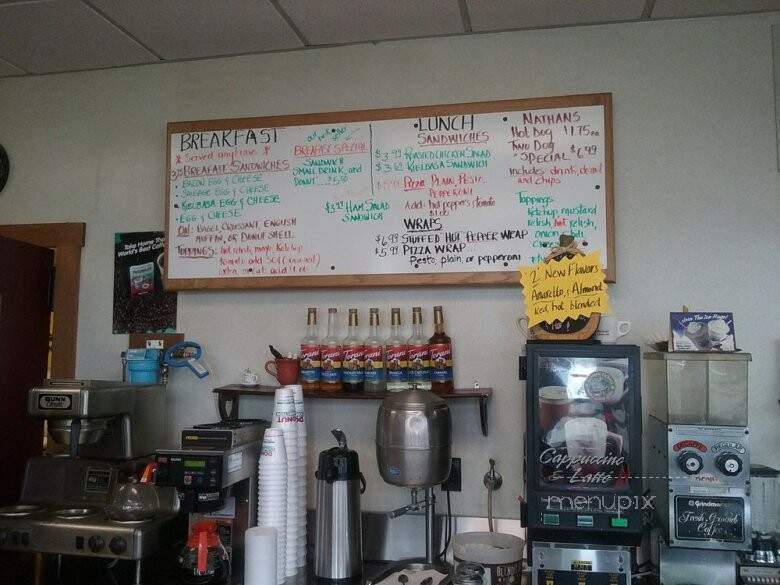 BREAKFAST
* Served anytime *
BREAKFAST SANDWICHES
BACON EGG & CHEESE
SAUSAGE EGG & CHEESE
KIELBASA EGG & CHEESE
EGG & CHEESE
ON: BAGEL, CROISSANT, ENGLISH
MUFFIN, OR DONUT SHELL
TOPPINGS: hot relish, mayo, ketchup
tomato add 50¢
extra meat add
BREAKFAST SPECIAL
SANDWICH
SMALL DRINK, and
DONUT
HAM SALAD
SANDWICH
LUNCH
SANDWICHES
$3.99 ROASTED CHICKEN SALAD
KIELBASA SANDWICH
Pizza PLAIN, PESTO,
PEPPERONI
Add: hot peppers, tomato
WRAPS
$6.99 STUFFED HOT PEPPER WRAP
$5.99 PIZZA WRAP
Pesto, plain, or pepperoni
NATHANS
HOT DOG $1.75 ea
TWO DOG
"SPECIAL" $6.99
includes drink, donut
and chips
Toppings
Ketchup, mustard
relish, hot relish,
onion, chili
cheese
2 New Flavors
Amaretto, & Almond
iced, hot blended
Take Home The
World's Best Coffee
Join The Ice Age!
BUNN
Torani
Torani
Torani
Torani
Torani
Torani
Torani
Cappuccino
& Latte
menupix
Grindmaster
Fresh Ground
Coffee